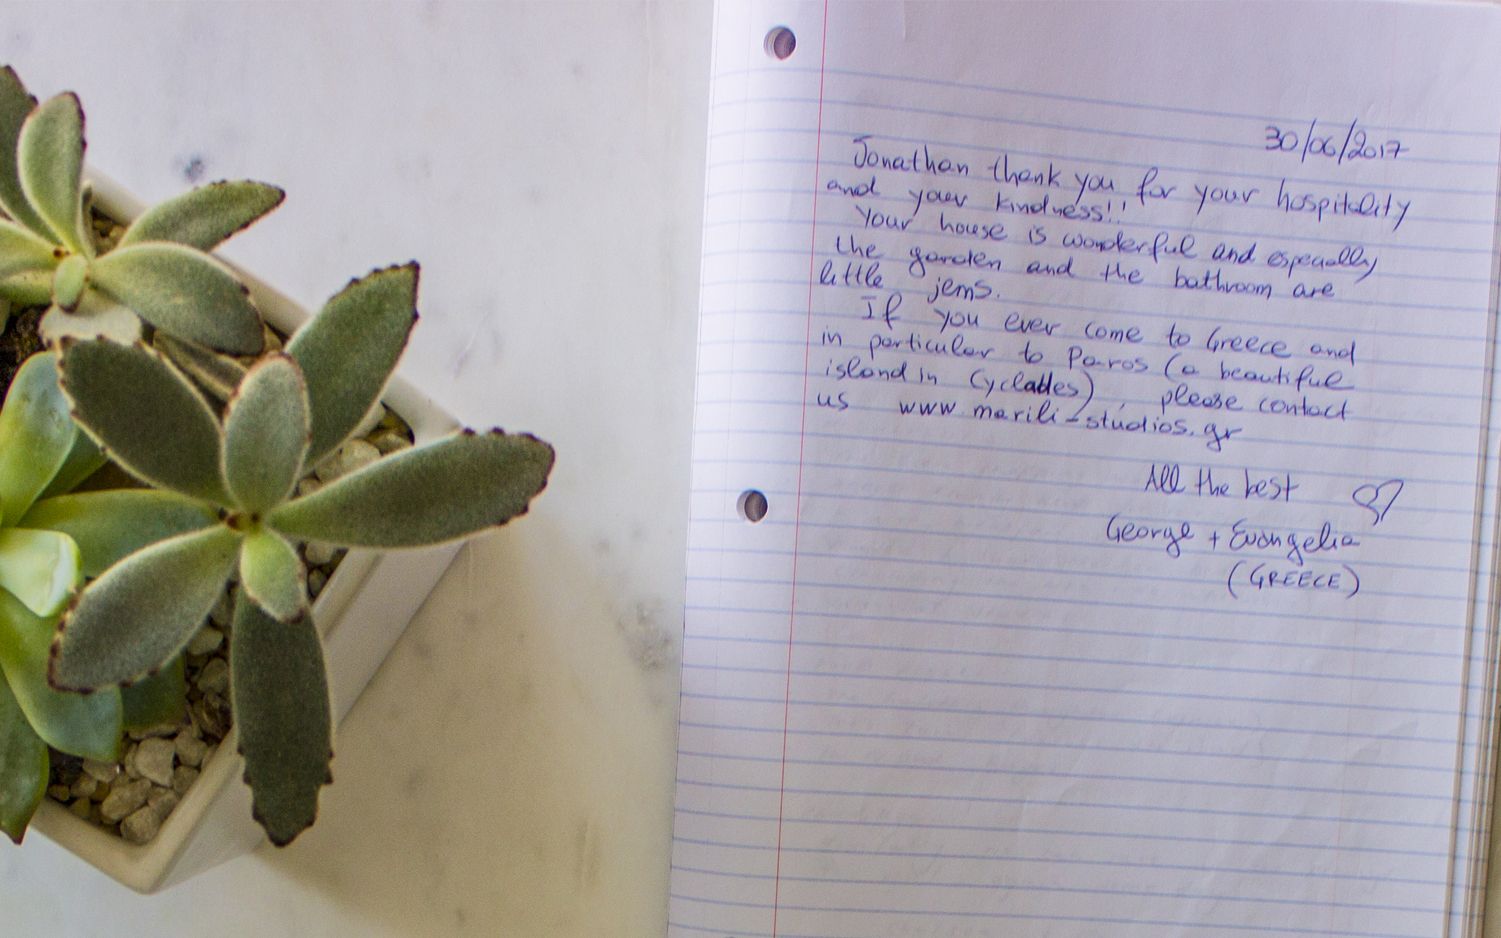 30/06/2017
Jonathan thank you for your hospitality
and your kindness!!
Your house is wonderful and especially
the garden and the bathroom are
little jems.
If you ever come to Greece and
in particular to Paros (a beautiful
island in Cyclades), please contact
us www.marili-studios.gr
All the best
George + Evangelia
(GREECE)